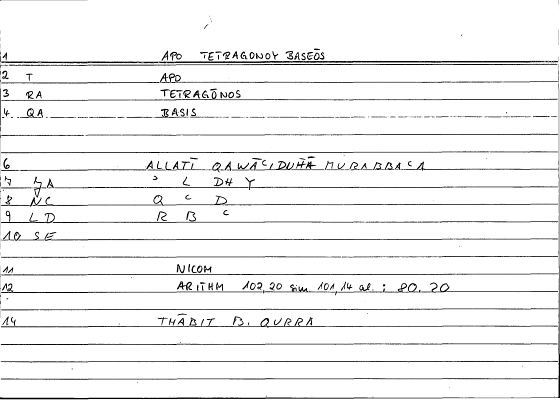 1 APO TETRAGONOY BASEŌS
2 T APO
3 RA TETRAGŌNOS
4 QA BASIS
6 ALLATĪ QAWĀʿIDUHĀ MURABBAʿA
7 A ʾ L DH Y
8 NC Q ʿ D
9 LD R B ʿ
10 SE
11 NICOM
12 ARITHM 102,20 sim 101,14 al. : 80.20
14 THĀBIT B. QURRA